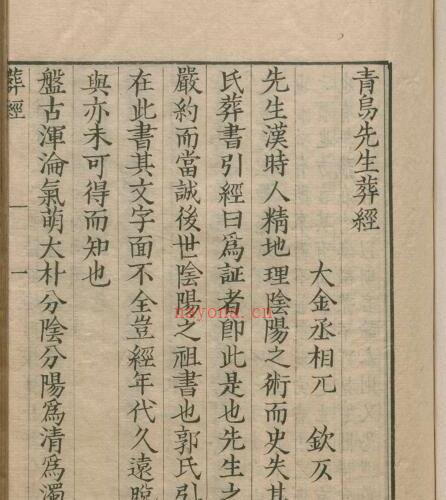 青烏先生葬經
大金丞相兀 欽仄
先生漢時人精地理陰陽之術而史失其
氏葬書引經曰爲証者卽此是也先生之
嚴約而當誠後世陰陽之祖書也郭氏引
在此書其文字面不全豈經年代久遠脫
與亦未可得而知也
盤古渾淪氣萌大朴分陰分陽爲清爲濁
葬經
一
nayona.cn